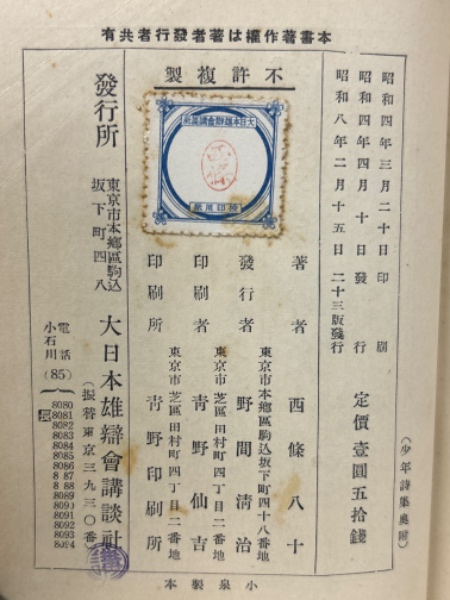 本書著作權は著者發行者共有
昭和四年三月二十日印刷
昭和四年四月十日發行
昭和八年二月十五日二十三版發行
定價壹圓五拾錢
(少年詩集奥附)
不許複製
大日本雄辯會講談社
檢印用紙
著者 西條八十
東京市本鄕區駒込坂下町四十八番地
發行者 野間淸治
東京市芝區田村町四丁目二番地
印刷者 靑野仙吉
東京市芝區田村町四丁目二番地
印刷所 靑野印刷所
發行所
東京市本鄕區駒込
坂下町四八
大日本雄辯會講談社
(振替東京三九三〇番)
電話
小石川
(85)
8080
8081
8082
8083
8084
8085
8086
8087
8088
8089
8090
8091
8092
8093
8094
小泉製本